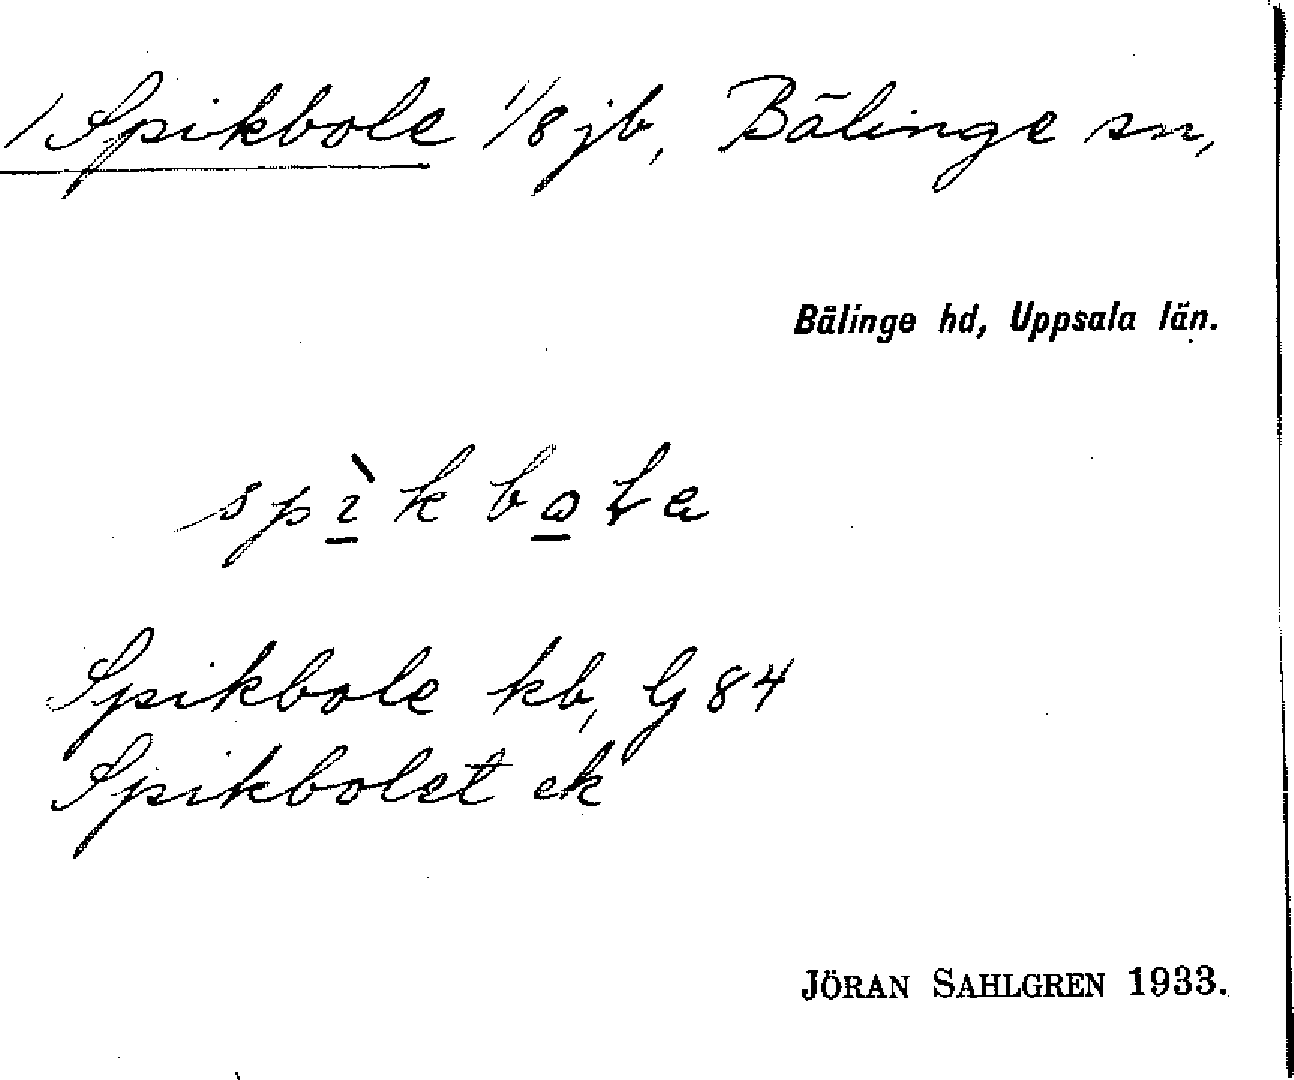 1 Spikbole 1/8 jb, Bälinge sn,
Bälinge hd, Uppsala län.
spìkboła
Spikbole kb, G 84
Spikbolet ek
JÖRAN SAHLGREN 1933.